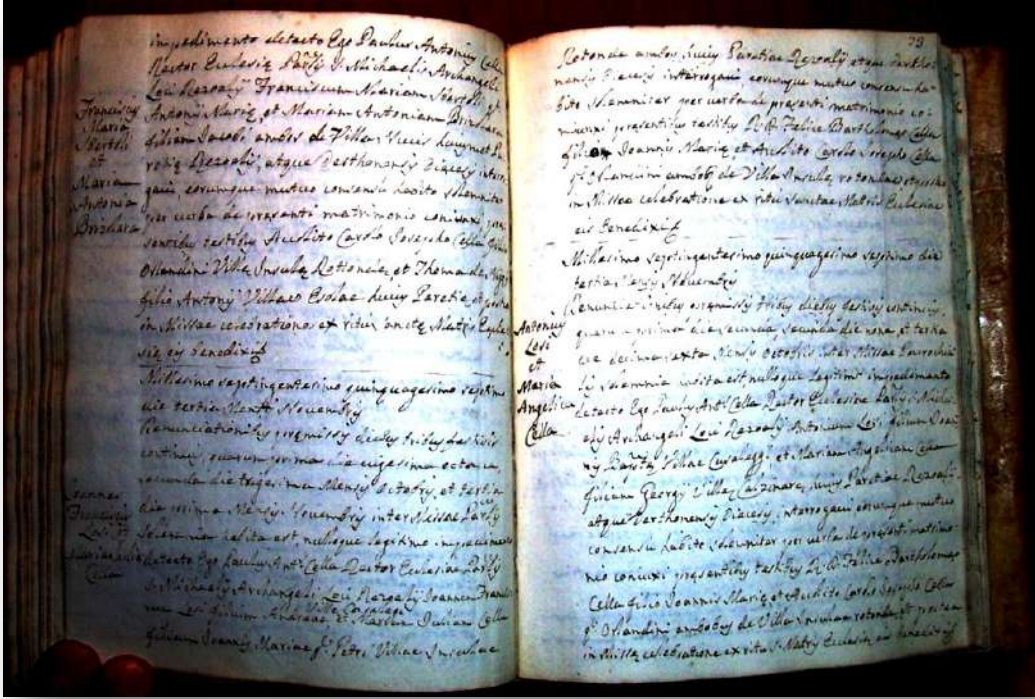 impedimento detecto Ego Paulus Antonius Cella
Rector Ecclesię Parlis S. Michaelis Archangeli
Loci Rezoalij Franciscum Mariam Sbertoli q.
Antonij Marię, et Mariam Antoniam Brizhara
filiam Jacobi ambos de Villa huiusmet Pa
rotię Rezoalij, atque Derthonensis Diecesis interro
gavi, eorumque mutuo consensu habito solemniter
per verba de pręsenti matrimonio coniunxi, pręs
sentibus testibus Audito Carolo Josepho Cella
Orlandini Villę Insulę Rottondę, et Thoma de
filio Antonij Villa huius Parotię, et postea
in Missae celebratione ex ritu Sanctę Matris Eccle
się eis benedixi
Franciscus
Maria
Sbertoli
et
Maria
Antonia
Brizhara
Millesimo septingentesimo quinquagesimo septimo
die tertia Mensis Novembris
Denunciationibus pręmissis diebus tribus festivis
continuis, quarum prima die vigesima octava,
secunda die trigesima Mensis Octobris, et tertia
die prima Mensis Novembris inter Missae Parlis
Solemnia habita est nulloque legitimo impedimento
detecto Ego Paulus Ant.s Cella Rector Ecclesiae Parlis
S. Michaelis Archangeli Loci Rezoalij Joannem Franci
scum Losi filium Andreae et Mariam Julianam Cella
filiam Joannis Mariae q. Petri Villae Insulae
Joannes
Franciscus
Losi et
Cella
79
Rotondę ambos huius Parotiae Rezoalij atque Dertho
nensis Diecesis interrogavi eorumque mutuo consensu ha
bito solemniter per verba de pręsenti matrimonio co
niunxi pręsentibus testibus R. D. Felice Bartholomeo Cella
filio Joannis Marię et Audito Carolo Josepho Cella
q. Orlandini ambobus de Villa Insulę rotondae et postea
in Missae celebratione ex ritu Sanctae Matris Ecclesiae
eis benedixi
Millesimo septingentesimo quinquagesimo septimo die
tertia Mensis Novembris
Denunciationibus pręmissis tribus diebus festivis continuis,
quarum prima die secunda, secunda die nona et tertia
die decima sexta Mensis Octobris inter Missae Parrochia
lis solemnia habita est, nulloque legitimo impedimento
detecto Ego Paulus Ant.s Cella Rector Ecclesiae Parlis S. Micha
elis Archangeli Loci Rezoalij Antonium Losi filium Joan
nis Bapt.ę Villae Casaleggi et Mariam Angelicam Cella
filiam Georgij Villę huius Parotiae Rezoalij
atque Derthonensis Diecesis, interrogavi eorumque mutuo
consensu habito solemniter per verba de pręsenti matrimo
nio coniunxi pręsentibus testibus R. D. Felice Bartholomeo
Cella filio Joannis Marię et Audito Carolo Josepho Cella
q. Orlandini ambobus de Villa Insulae rotondę, et postea
in Missę celebratione ex ritu S. Matris Ecclesię eis benedixi
Antonius
Losi
et
Maria
Angelica
Cella